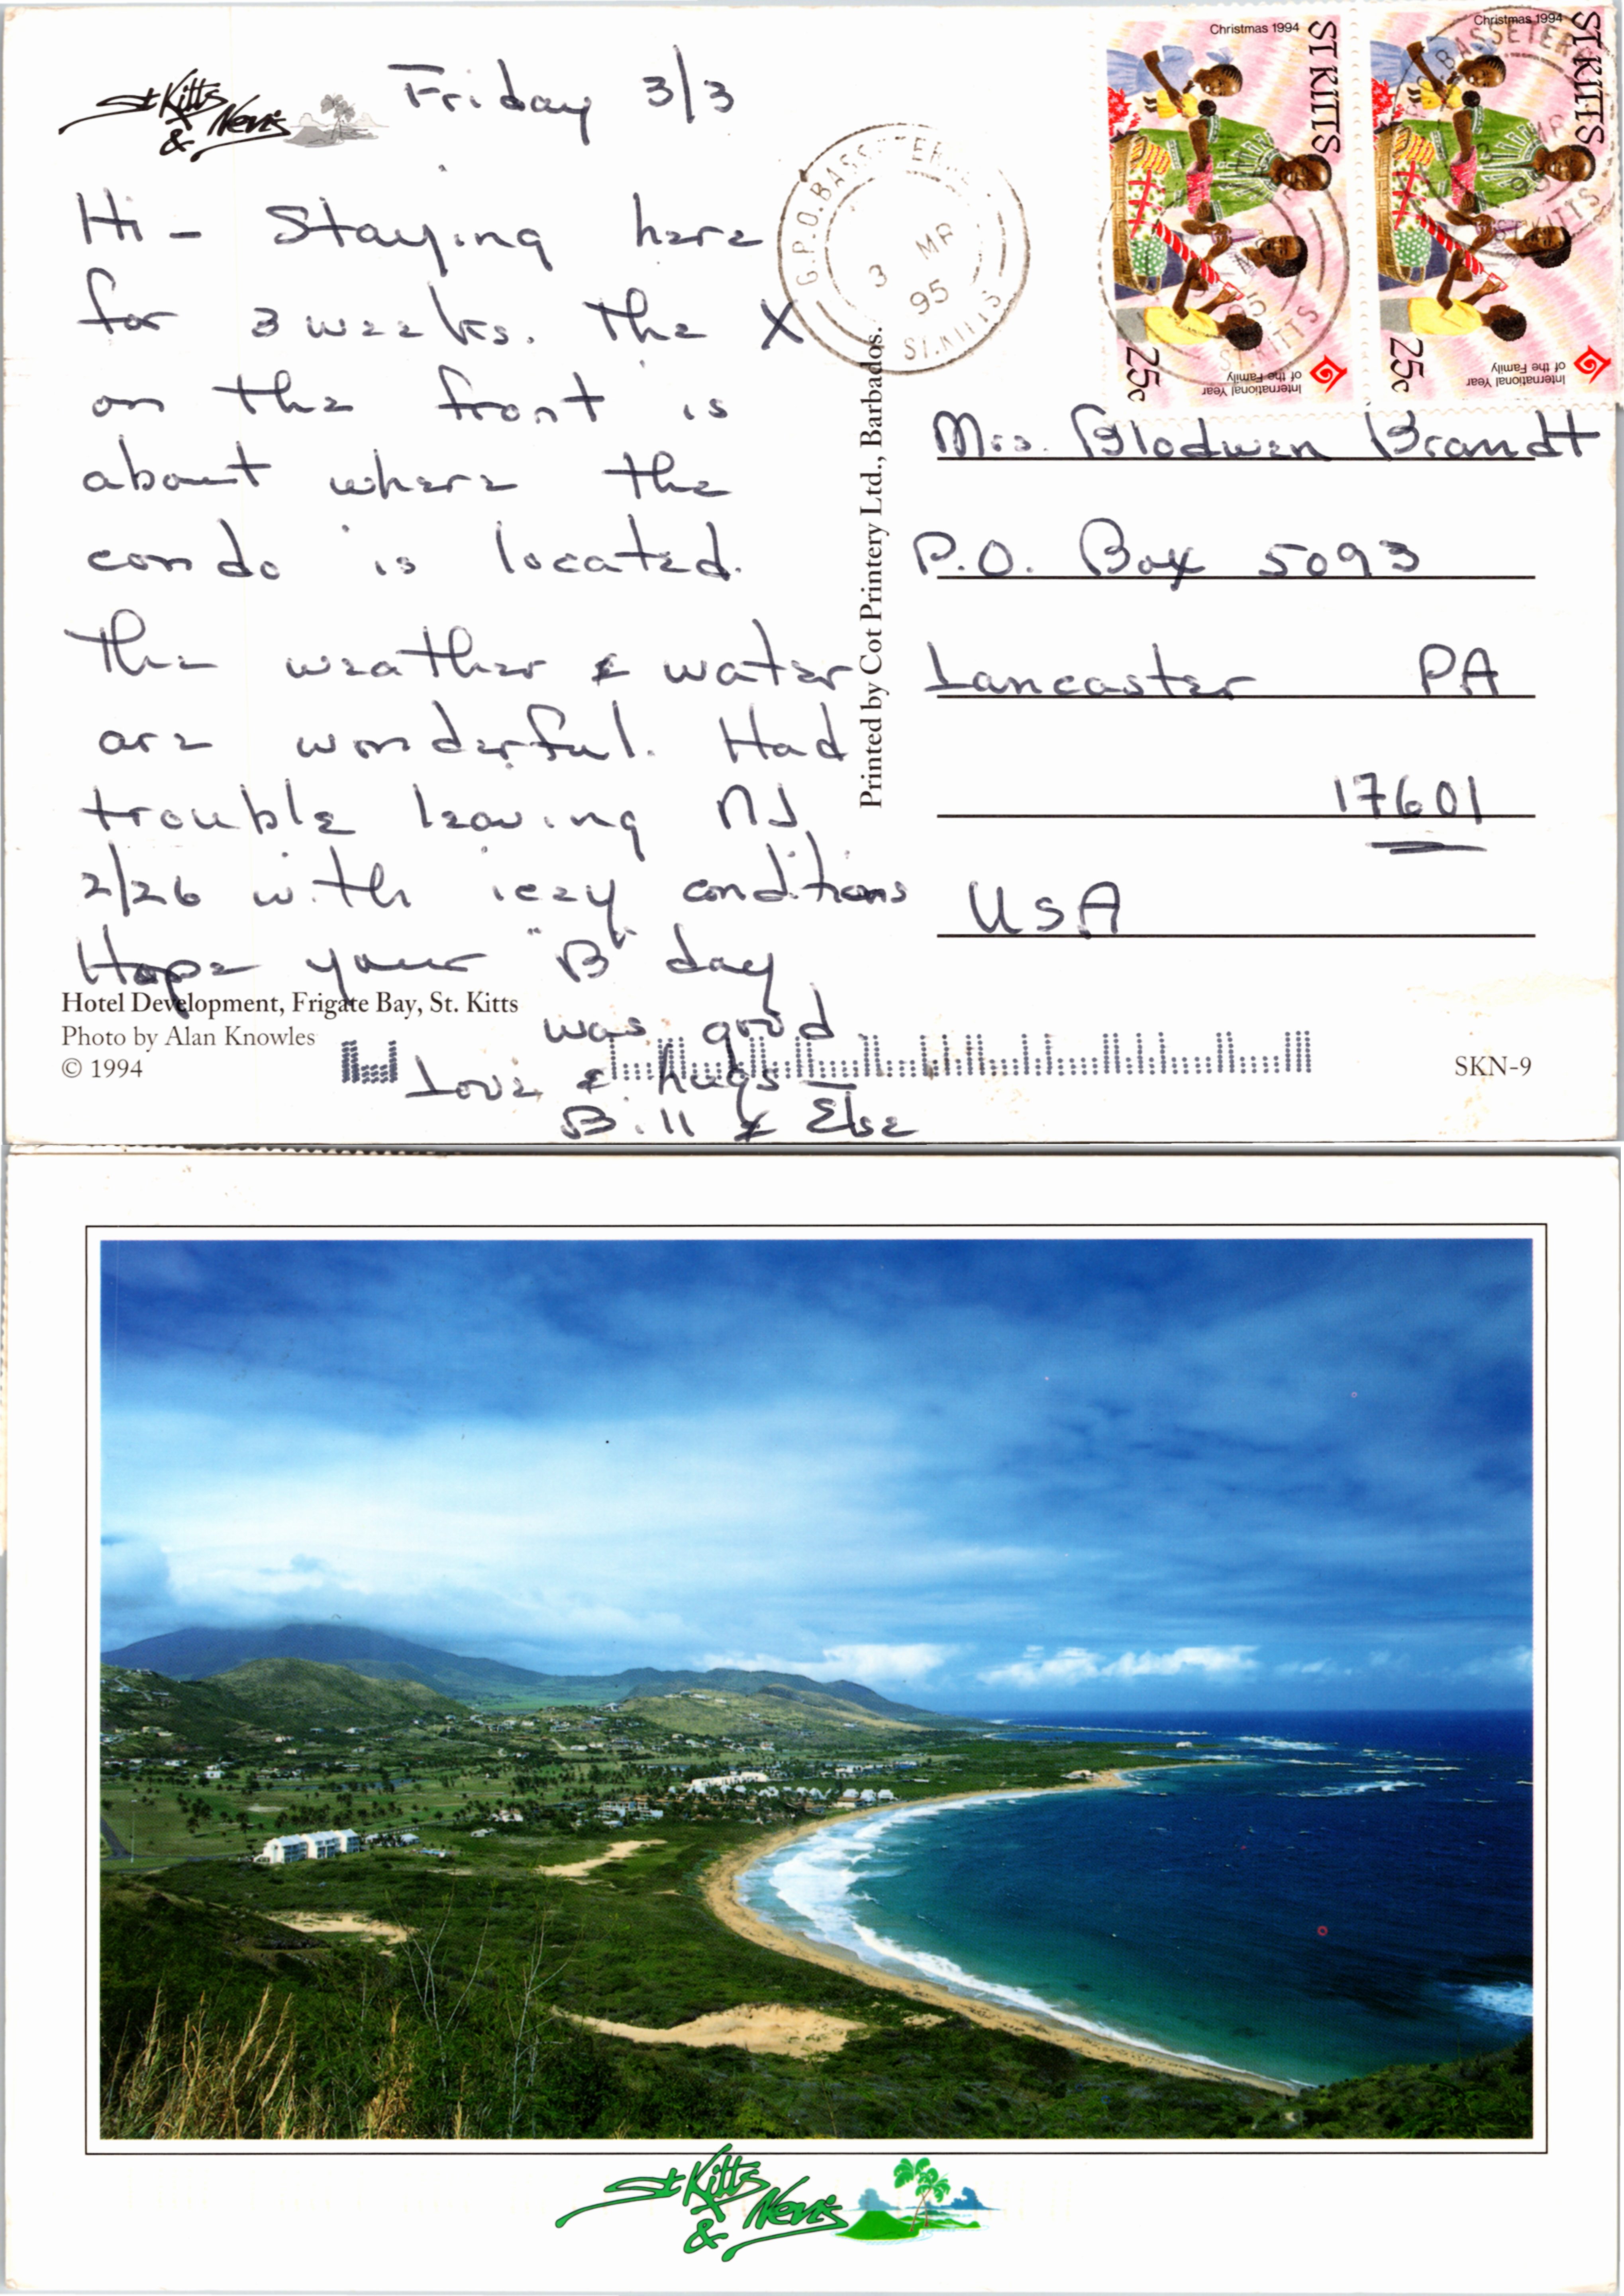 St Kitts
& Nevis
Friday 3/3
Hi - Staying here
for 3 weeks. The X
on the front is
about where the
condo is located.
The weather & water
are wonderful. Had
trouble leaving NJ
2/26 with icey conditions
Hope your "B" day
was good
Love & hugs —
Bill & Else
Hotel Development, Frigate Bay, St. Kitts
Photo by Alan Knowles
© 1994
Printed by Cot Printery Ltd., Barbados.
G.P.O. BASSETERRE
3 MR
95
ST. KITTS
Christmas 1994
ST KITTS
25c
International Year
of the Family
Christmas 1994
ST KITTS
25c
International Year
of the Family
BASSETERRE
MR
95
ST. KITTS
95
ST. KITTS
Mrs. Blodwen Brandt
P.O. Box 5093
Lancaster PA
17601
USA
SKN-9
St Kitts
& Nevis